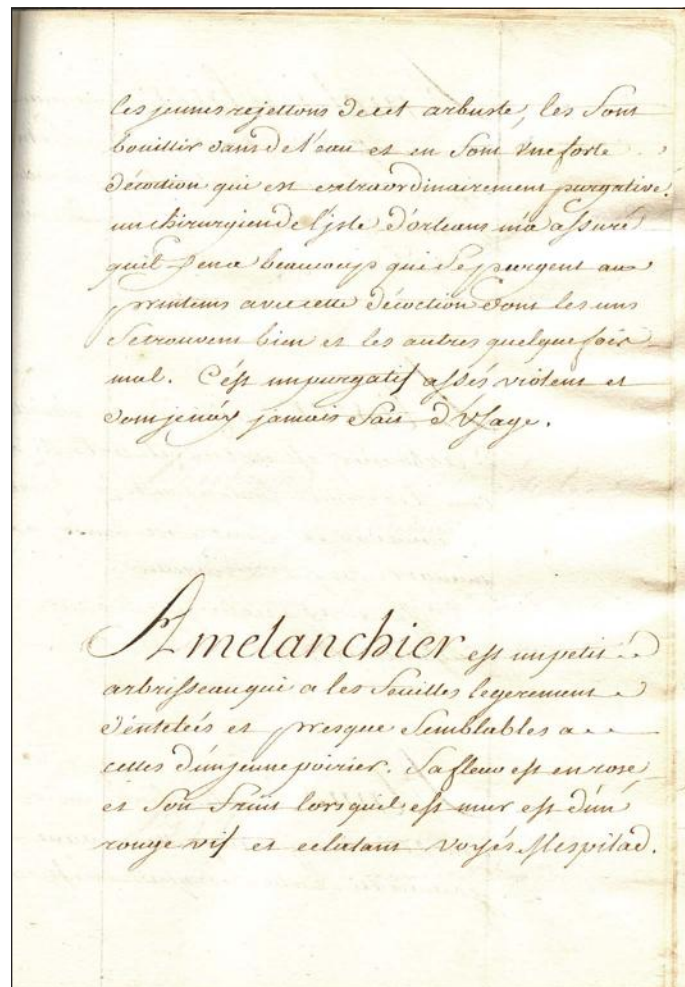 les jeunes rejettons de cet arbuste, les font
bouillir dans de l'eau et en font une forte
décoction qui est extraordinairement purgative.
un chirurgien de l'isle d'orleans m'a assuré
qu'il y en a beaucoup qui se purgent au
printems avec cette décoction dont les uns
se trouvent bien et les autres quelque fois
mal. C'est un purgatif assés violent et
dont je n'ay jamais fait d'usage.
Amelanchier est un petit
arbrisseau qui a les feuilles legerement
dentelées et presque semblables a
celles d'un jeune poirier. Sa fleur est en rose,
et son fruit lorsqu'il est mur est d'un
rouge vif et eclatant voyés